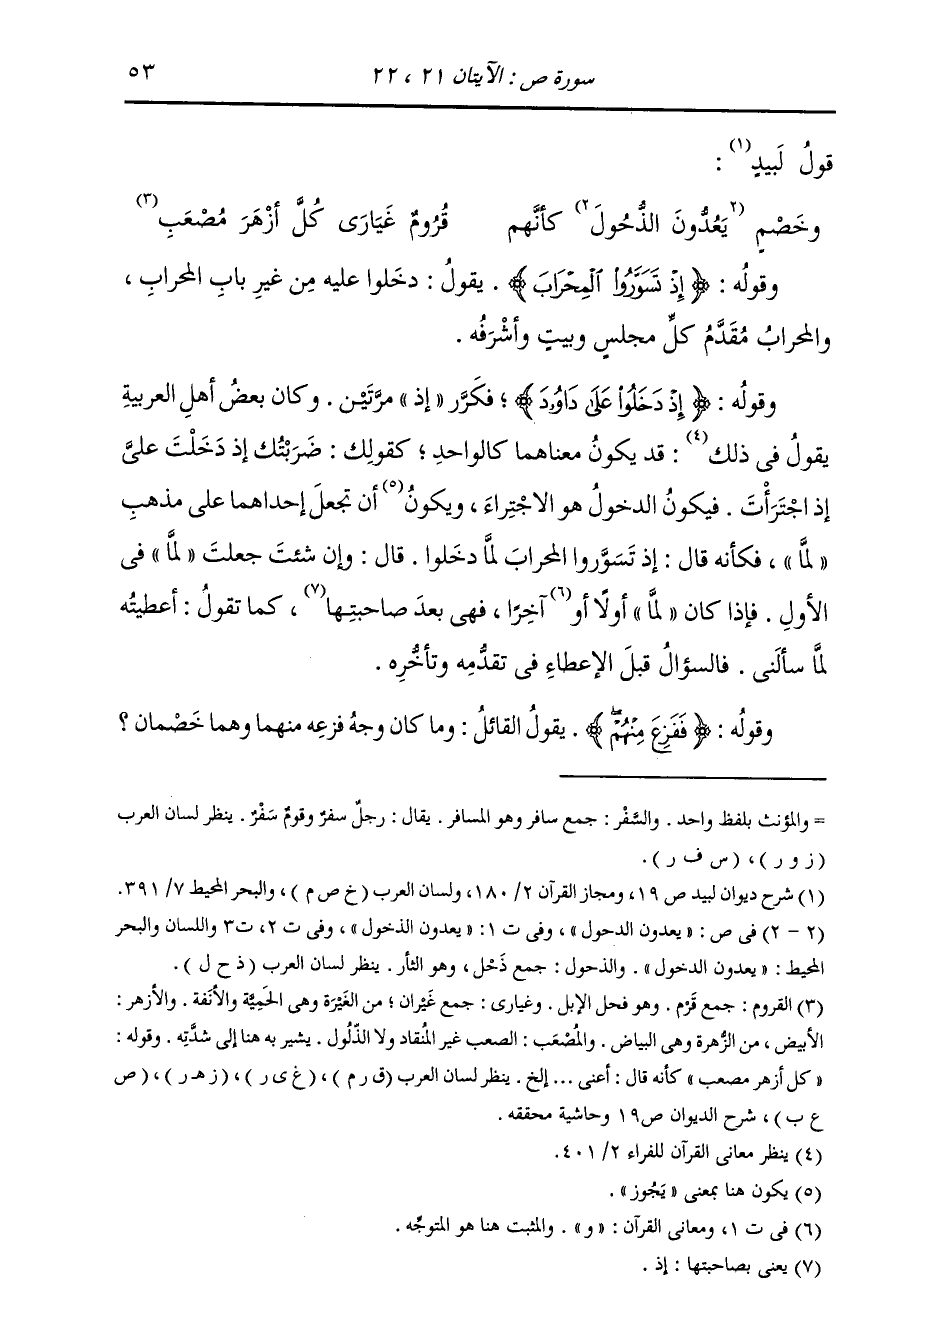 سورة ص : الآيتان ٢١ ، ٢٢ ٥٣
قولُ لَبيدٍ(١) :
وخَصْمٍ (٢يَعُدُّونَ الذُّحُولَ٢) كأنَّهم قُرُومٌ غَيَارَى كُلَّ أزْهَرَ مُصْعَبِ(٣)
وقولُه : ﴿ إِذْ تَسَوَّرُوا۟ ٱلْمِحْرَابَ ﴾ . يقولُ : دخَلوا عليه مِن غيرِ بابِ المحرابِ ،
والمحرابُ مُقَدَّمُ كلِّ مجلسٍ وبيتٍ وأشْرَفُه .
وقولُه : ﴿ إِذْ دَخَلُوا۟ عَلَىٰ دَاوُۥدَ ﴾ ؛ فكَرَّر « إذ » مرَّتَيْن . وكان بعضُ أهلِ العربيةِ
يقولُ فى ذلك(٤) : قد يكونُ معناهما كالواحدِ ؛ كقولِك : ضَرَبْتُك إذ دَخَلْتَ علىَّ
إذ اجْتَرَأْتَ . فيكونُ الدخولُ هو الاجْتِراءَ ، ويكونُ(٥) أن تجعلَ إحداهما على مذهبِ
« لمَّا » ، فكأنه قال : إذ تَسَوَّروا المحرابَ لمَّا دخَلوا . قال : وإن شئتَ جعلتَ « لمَّا » فى
الأولِ . فإذا كان « لمَّا » أولًا أو(٦) آخِرًا ، فهى بعدَ صاحبتِها(٧) ، كما تقولُ : أعطيتُه
لمَّا سألَنى . فالسؤالُ قبلَ الإعطاءِ فى تقدُّمِه وتأخُّرِه .
وقولُه : ﴿ فَفَزِعَ مِنْهُمْ ۖ ﴾ . يقولُ القائلُ : وما كان وجهُ فزعِه منهما وهما خَصْمان ؟
= والمؤنث بلفظ واحد . والسَّفْر : جمع سافر وهو المسافر . يقال : رجلٌ سفرٌ وقومٌ سَفْرٌ . ينظر لسان العرب
(ز و ر) ، (س ف ر) .
(١) شرح ديوان لبيد ص ١٩، ومجاز القرآن ٢/ ١٨٠، ولسان العرب (خ ص م) ، والبحر المحيط ٧/ ٣٩١.
(٢ - ٢) فى ص : « يعدون الدحول » ، وفى ت ١: « يعدون الذخول » ، وفى ت ٢، ت٣ واللسان والبحر
المحيط : « يعدون الدخول » . والذحول : جمع ذَحْل ، وهو الثأر . ينظر لسان العرب (ذ ح ل) .
(٣) القروم : جمع قَرْم . وهو فحل الإبل . وغيارى : جمع غَيْران ؛ من الغَيْرَة وهى الحَمِيَّة والأَنَفة . والأزهر :
الأبيض ، من الزُّهرة وهى البياض . والمُصْعَب : الصعب غير المُنقاد ولا الذَّلُول . يشير به هنا إلى شدَّتِه . وقوله :
« كل أزهر مصعب » كأنه قال : أعنى ... إلخ . ينظر لسان العرب (ق ر م) ، (غ ى ر) ، (ز هـ ر) ، (ص
ع ب) ، شرح الديوان ص١٩ وحاشية محققه .
(٤) ينظر معانى القرآن للفراء ٢/ ٤٠١.
(٥) يكون هنا بمعنى « يَجُوز » .
(٦) فى ت ١، ومعانى القرآن : « و » . والمثبت هنا هو المتوجَّه .
(٧) يعنى بصاحبتها : إذ .